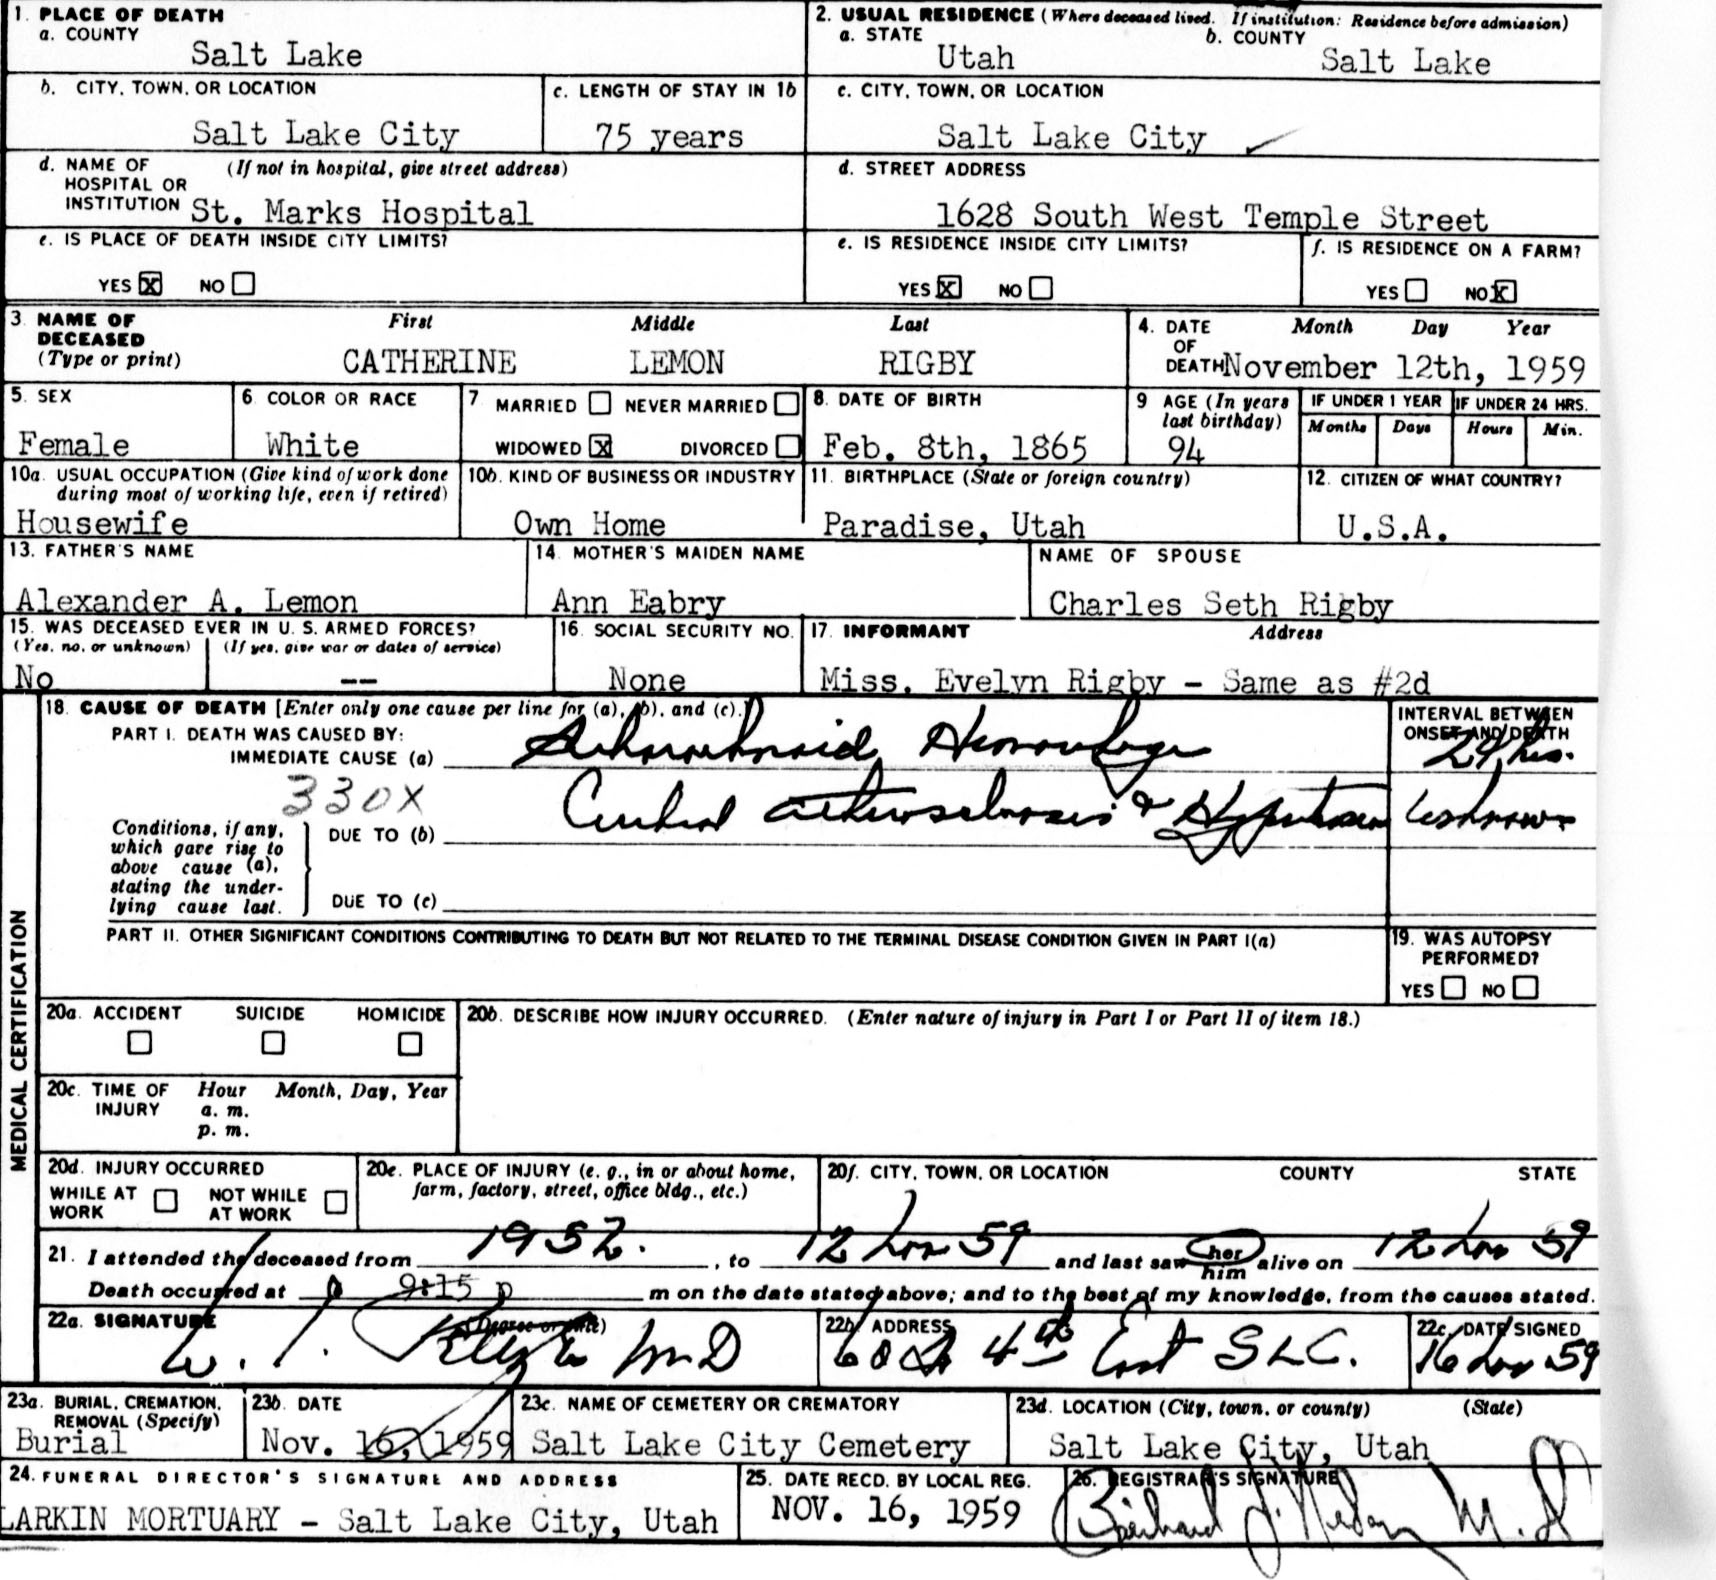 1. PLACE OF DEATH
a. COUNTY
Salt Lake
2. USUAL RESIDENCE (Where deceased lived. If institution: Residence before admission)
a. STATE
Utah
b. COUNTY
Salt Lake
b. CITY, TOWN, OR LOCATION
Salt Lake City
c. LENGTH OF STAY IN 1b
75 years
c. CITY, TOWN, OR LOCATION
Salt Lake City
d. NAME OF (If not in hospital, give street address)
HOSPITAL OR
INSTITUTION St. Marks Hospital
d. STREET ADDRESS
1628 South West Temple Street
e. IS PLACE OF DEATH INSIDE CITY LIMITS?
YES X NO
e. IS RESIDENCE INSIDE CITY LIMITS?
YES X NO
f. IS RESIDENCE ON A FARM?
YES NO X
3. NAME OF DECEASED (Type or print)
First Middle Last
CATHERINE LEMON RIGBY
4. DATE OF DEATH
Month Day Year
November 12th, 1959
5. SEX
Female
6. COLOR OR RACE
White
7. MARRIED NEVER MARRIED
WIDOWED X DIVORCED
8. DATE OF BIRTH
Feb. 8th, 1865
9. AGE (In years last birthday)
94
IF UNDER 1 YEAR
Months Days
IF UNDER 24 HRS.
Hours Min.
10a. USUAL OCCUPATION (Give kind of work done
during most of working life, even if retired)
Housewife
10b. KIND OF BUSINESS OR INDUSTRY
Own Home
11. BIRTHPLACE (State or foreign country)
Paradise, Utah
12. CITIZEN OF WHAT COUNTRY?
U.S.A.
13. FATHER'S NAME
Alexander A. Lemon
14. MOTHER'S MAIDEN NAME
Ann Eabry
NAME OF SPOUSE
Charles Seth Rigby
15. WAS DECEASED EVER IN U. S. ARMED FORCES?
(Yes, no, or unknown) (If yes, give war or dates of service)
No --
16. SOCIAL SECURITY NO.
None
17. INFORMANT Address
Miss. Evelyn Rigby - Same as #2d
MEDICAL CERTIFICATION
18. CAUSE OF DEATH [Enter only one cause per line for (a), (b), and (c).]
PART I. DEATH WAS CAUSED BY:
IMMEDIATE CAUSE (a) Subarachnoid Hemorrhage
INTERVAL BETWEEN
ONSET AND DEATH
24 hrs.
330X
Conditions, if any,
which gave rise to
above cause (a),
stating the under-
lying cause last.
DUE TO (b) Cerebral arteriosclerosis & Hypertension Unknown
DUE TO (c)
PART II. OTHER SIGNIFICANT CONDITIONS CONTRIBUTING TO DEATH BUT NOT RELATED TO THE TERMINAL DISEASE CONDITION GIVEN IN PART I(a)
19. WAS AUTOPSY
PERFORMED?
YES NO
20a. ACCIDENT SUICIDE HOMICIDE
20b. DESCRIBE HOW INJURY OCCURRED. (Enter nature of injury in Part I or Part II of item 18.)
20c. TIME OF INJURY
Hour Month, Day, Year
a. m.
p. m.
20d. INJURY OCCURRED
WHILE AT WORK NOT WHILE AT WORK
20e. PLACE OF INJURY (e. g., in or about home,
farm, factory, street, office bldg., etc.)
20f. CITY, TOWN, OR LOCATION COUNTY STATE
21. I attended the deceased from 1952. , to 12 Nov 59 and last saw her him alive on 12 Nov 59
Death occurred at 9:15 p m on the date stated above; and to the best of my knowledge, from the causes stated.
22a. SIGNATURE (Degree or title)
M D
22b. ADDRESS
4th East SLC.
22c. DATE SIGNED
16 Nov 59
23a. BURIAL, CREMATION,
REMOVAL (Specify)
Burial
23b. DATE
Nov. 16, 1959
23c. NAME OF CEMETERY OR CREMATORY
Salt Lake City Cemetery
23d. LOCATION (City, town, or county) (State)
Salt Lake City, Utah
24. FUNERAL DIRECTOR'S SIGNATURE AND ADDRESS
LARKIN MORTUARY - Salt Lake City, Utah
25. DATE RECD. BY LOCAL REG.
NOV. 16, 1959
26. REGISTRAR'S SIGNATURE
M. D